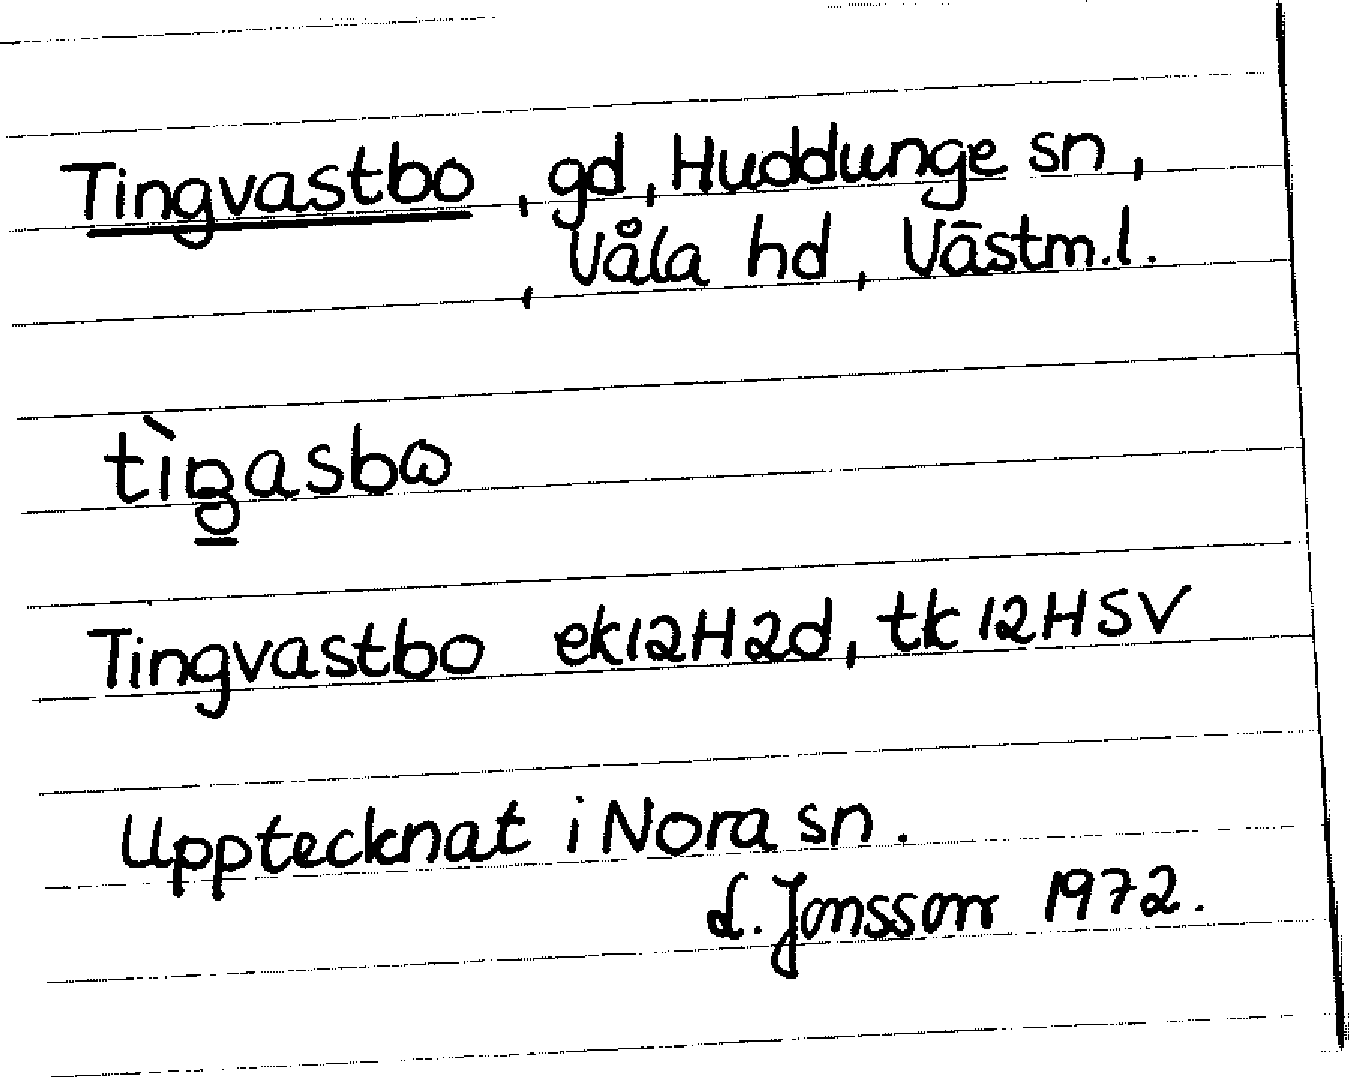 Tingvastbo, gd, Huddunge sn,
, Våla hd, Västm.l.
Tingvastbo ek12H2d, tk12HSV
Upptecknat i Nora sn.
L. Jonsson 1972.